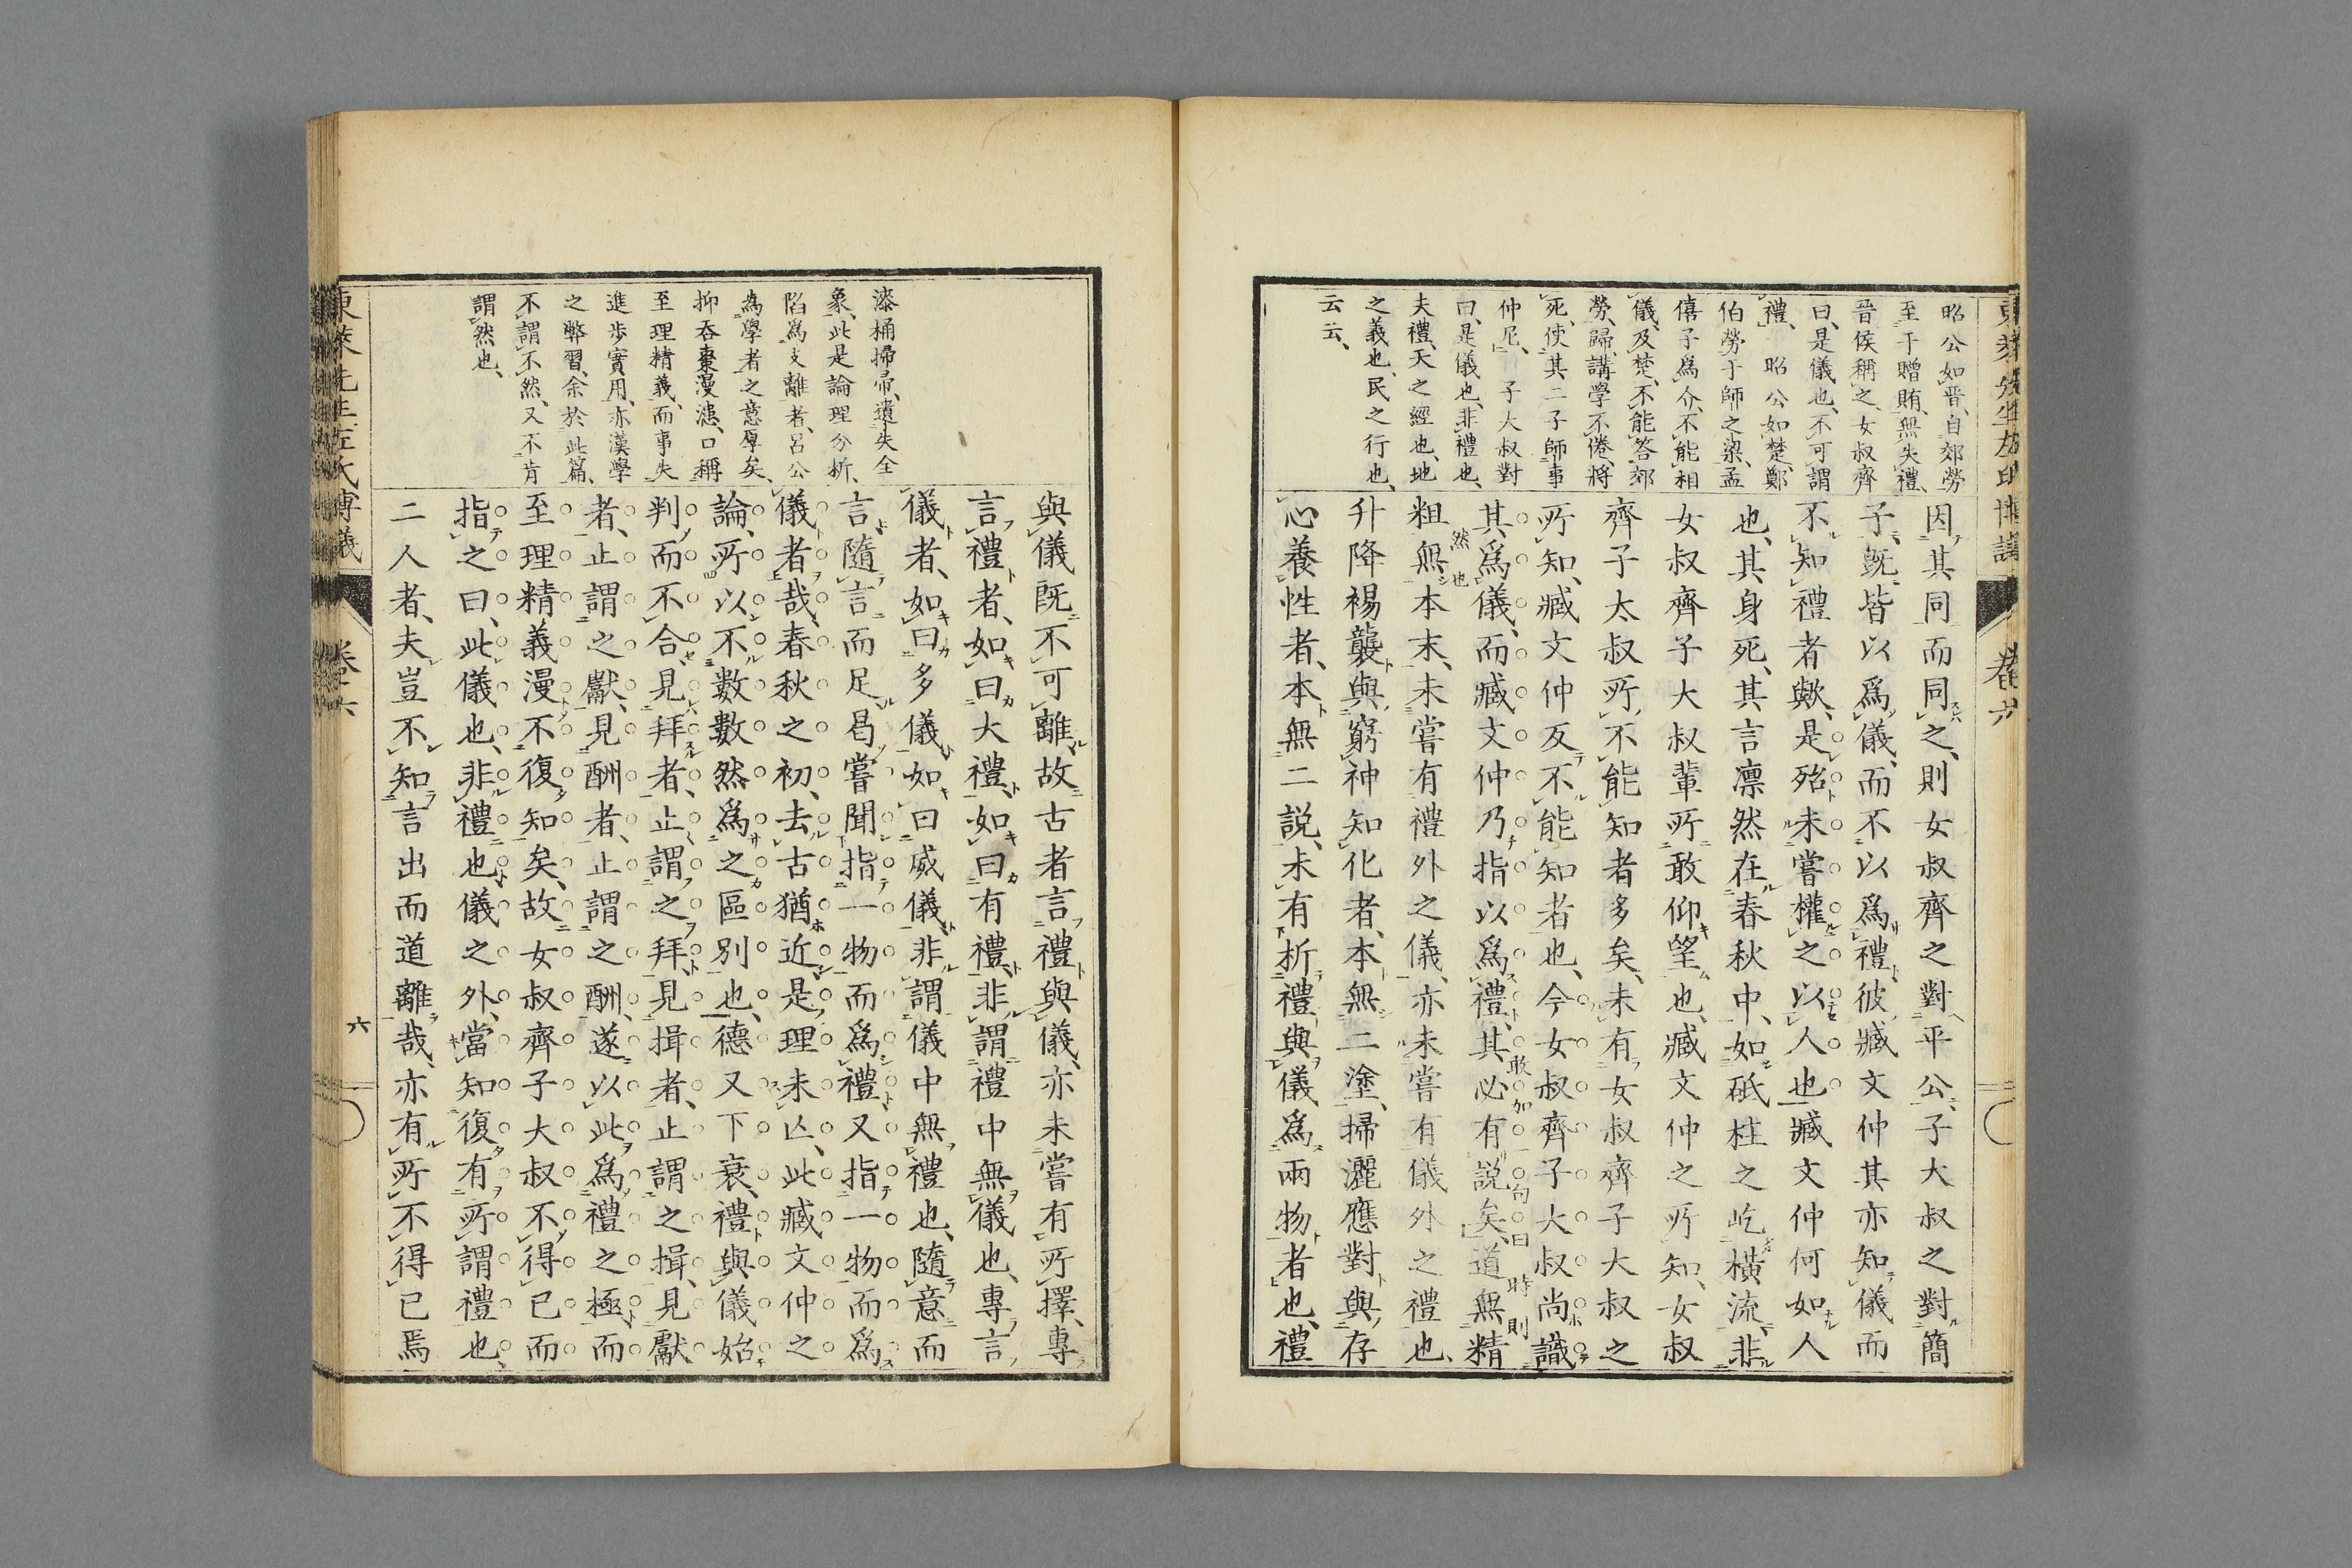 昭公如晋、自郊勞
至于贈賄、無失禮、
晉侯稱之、女叔齊
曰、是儀也、不可謂
禮、昭公如楚、鄭
伯勞于師之梁、孟
僖子爲介、不能相
儀、及楚、不能答郊
勞、歸、講學不倦、將
死、使其二子師事
仲尼、子大叔對
曰、是儀也、非禮也、
夫禮、天之經也、地
之義也、民之行也、
云云、
因其同而同之、則女叔齊之對平公、子大叔之對簡
子、既皆以爲儀、而不以爲禮、彼臧文仲其亦知儀而
不知禮者歟、是殆未嘗權之以人也、臧文仲何如人
也、其身死、其言凛然在春秋中、如砥柱之屹橫流、非
女叔齊子大叔輩所敢仰望也、臧文仲之所知、女叔
齊子太叔所不能知者多矣、未有女叔齊子大叔之
所知、臧文仲反不能知者也、今女叔齊子大叔尚識
其爲儀、而臧文仲乃指以爲禮、其必有説矣、道無精
粗、無本末、未嘗有禮外之儀、亦未嘗有儀外之禮也、
升降裼襲與窮神知化者、本無二塗、掃灑應對與存
心養性者、本無二説、未有析禮與儀爲兩物者也、禮
然也
敢加一句曰時則
卷六
漆桶掃帚、遺失全
象、此是論理分析、
陷爲支離者、呂公
爲學者之意厚矣、
抑吞棗漫漶、口稱
至理精義、而事失
進歩實用、亦漢學
之弊習、余於此篇、
不謂不然、又不肯
謂然也、
與儀既不可離、故古者言禮與儀、亦未嘗有所擇、專
言禮者、如曰大禮、如曰有禮、非謂禮中無儀也、專言
儀者、如曰多儀、如曰威儀、非謂儀中無禮也、隨意而
言、隨言而足、曷嘗聞指一物而爲禮、又指一物而爲
儀者哉、春秋之初、去古猶近、是理未亡、此臧文仲之
論、所以不數數然爲之區別也、德又下衰、禮與儀始
判而不合、見拜者、止謂之拜、見揖者、止謂之揖、見獻
者、止謂之獻、見酬者、止謂之酬、遂以此爲禮之極、而
至理精義漫不復知矣、故女叔齊子大叔不得已而
指之曰、此儀也、非禮也、儀之外、當知復有所謂禮也、
二人者、夫豈不知言出而道離哉、亦有所不得已焉
東萊先生左氏博議
卷六
六